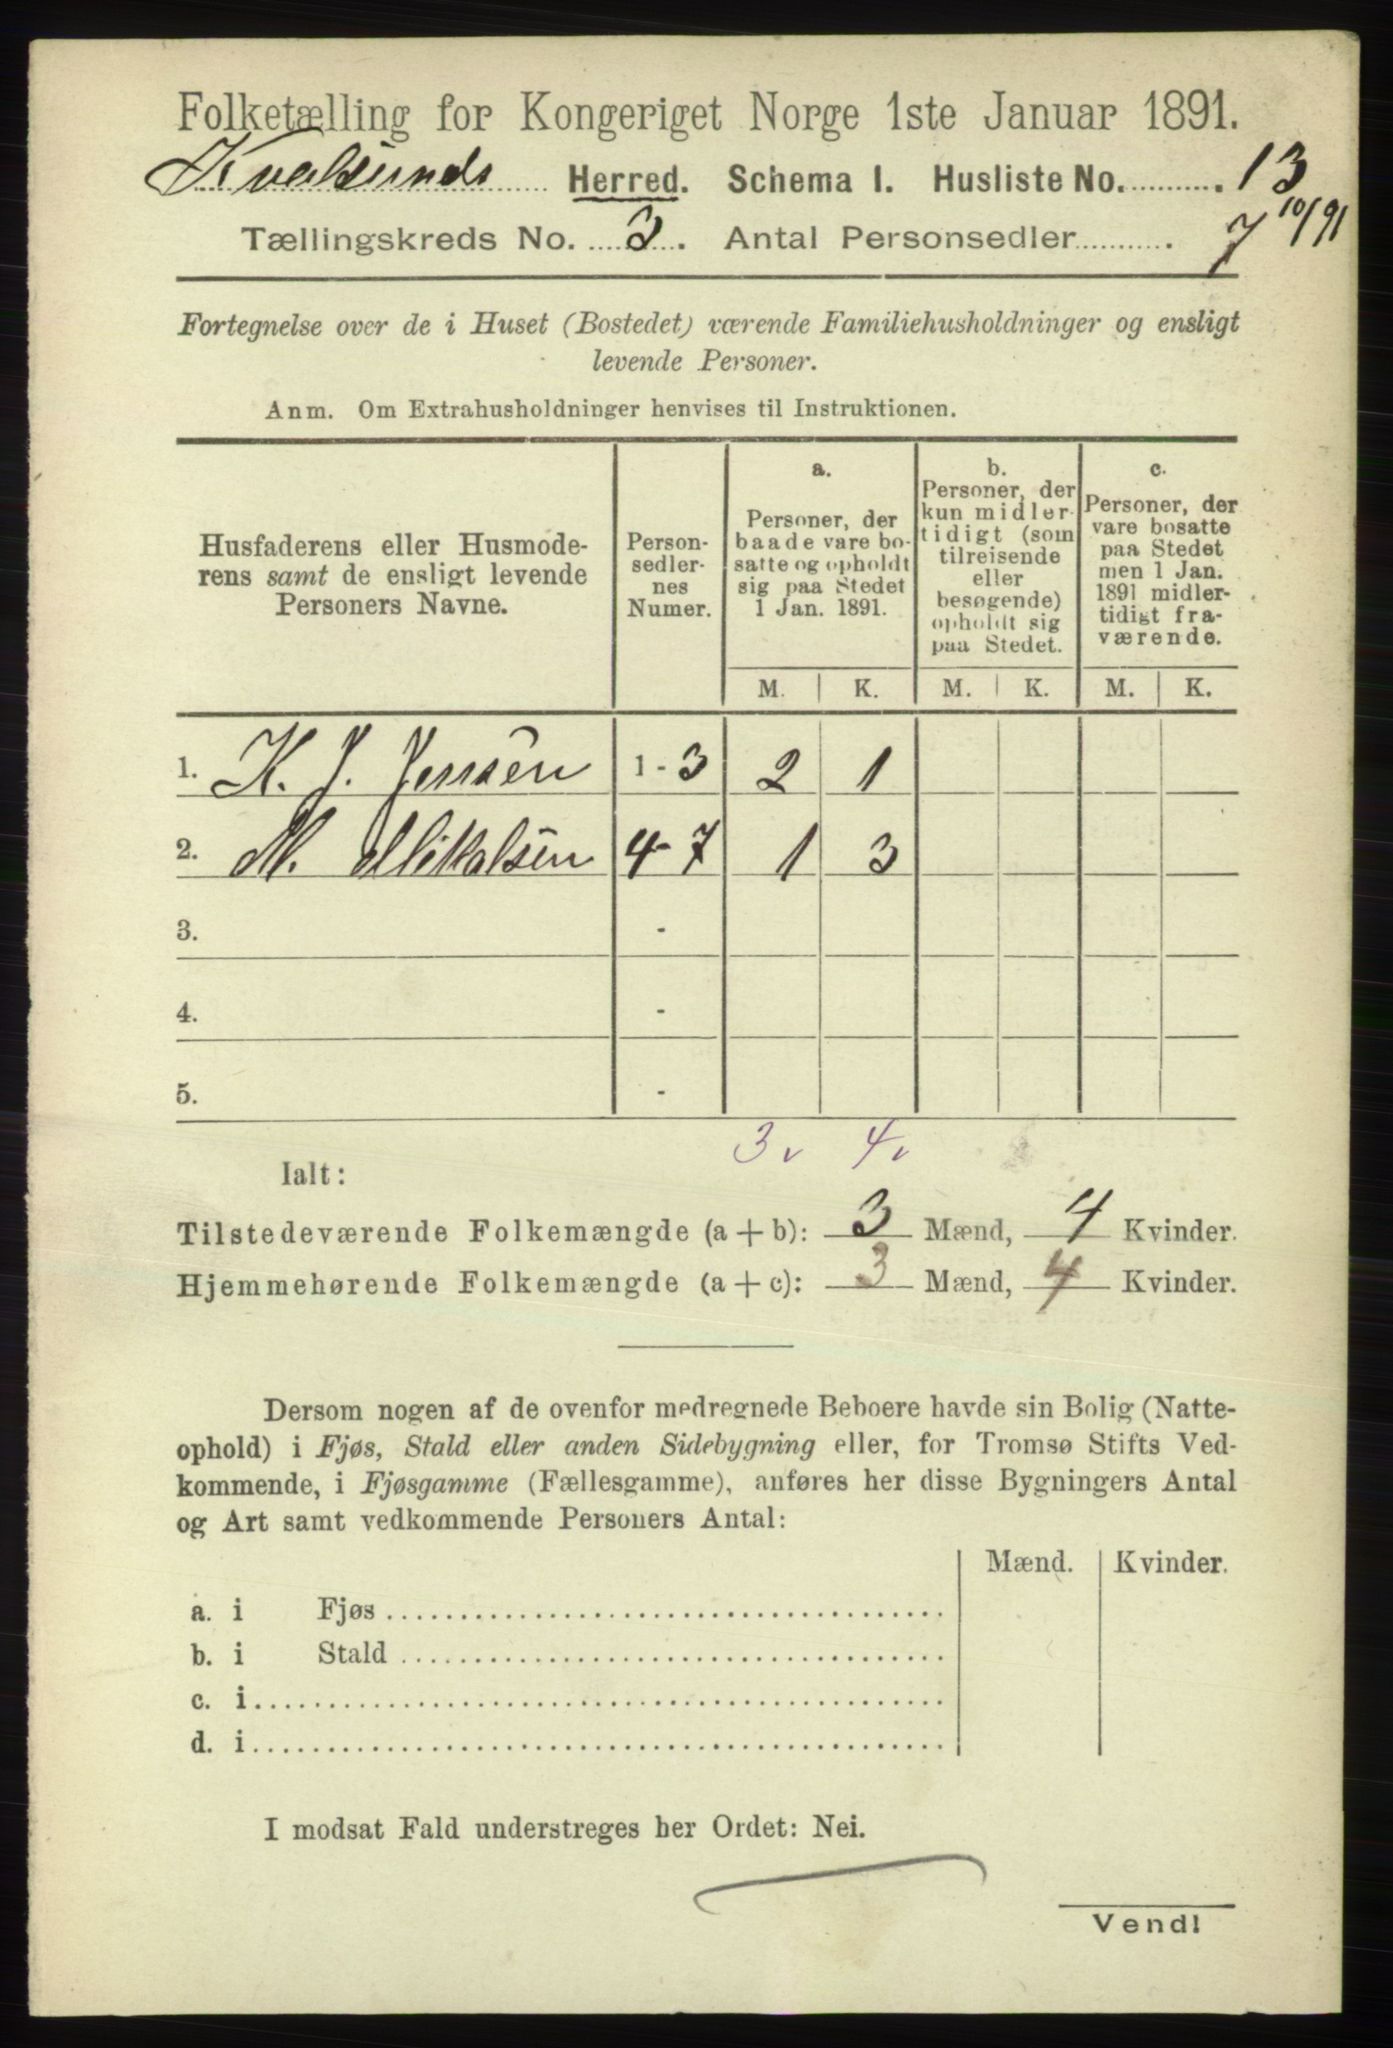 Folketælling for Kongeriget Norge 1ste Januar 1891.
Kvalsunds Herred. Schema I. Husliste No. 13
Tællingskreds No. 3. Antal Personsedler 7 10/91
Fortegnelse over de i Huset (Bostedet) værende Familiehusholdninger og ensligt
levende Personer.
Anm. Om Extrahusholdninger henvises til Instruktionen.
Husfaderens eller Husmode-
rens samt de ensligt levende
Personers Navne.
Person-
sedler-
nes
Numer.
a.
Personer, der
baade vare bo-
satte og opholdt
sig paa Stedet
1 Jan. 1891.
b.
Personer, der
kun midler-
tidigt (som
tilreisende
eller
besøgende)
opholdt sig
paa Stedet.
c.
Personer, der
vare bosatte
paa Stedet
men 1 Jan.
1891 midler-
tidigt fra-
værende.
M. K. M. K. M. K.
1. K. J. Jensen 1 - 3 2 1
2. M. Mikalsen 4 - 7 1 3
3. -
4. -
5. -
3 v 4 v
Ialt:
Tilstedeværende Folkemængde (a + b): 3 Mænd, 4 Kvinder.
Hjemmehørende Folkemængde (a + c): 3 Mænd, 4 Kvinder.
Dersom nogen af de ovenfor medregnede Beboere havde sin Bolig (Natte-
ophold) i Fjøs, Stald eller anden Sidebygning eller, for Tromsø Stifts Ved-
kommende, i Fjøsgamme (Fællesgamme), anføres her disse Bygningers Antal
og Art samt vedkommende Personers Antal:
Mænd. Kvinder.
a. i Fjøs
b. i Stald
c. i
d. i
I modsat Fald understreges her Ordet: Nei.
Vend!